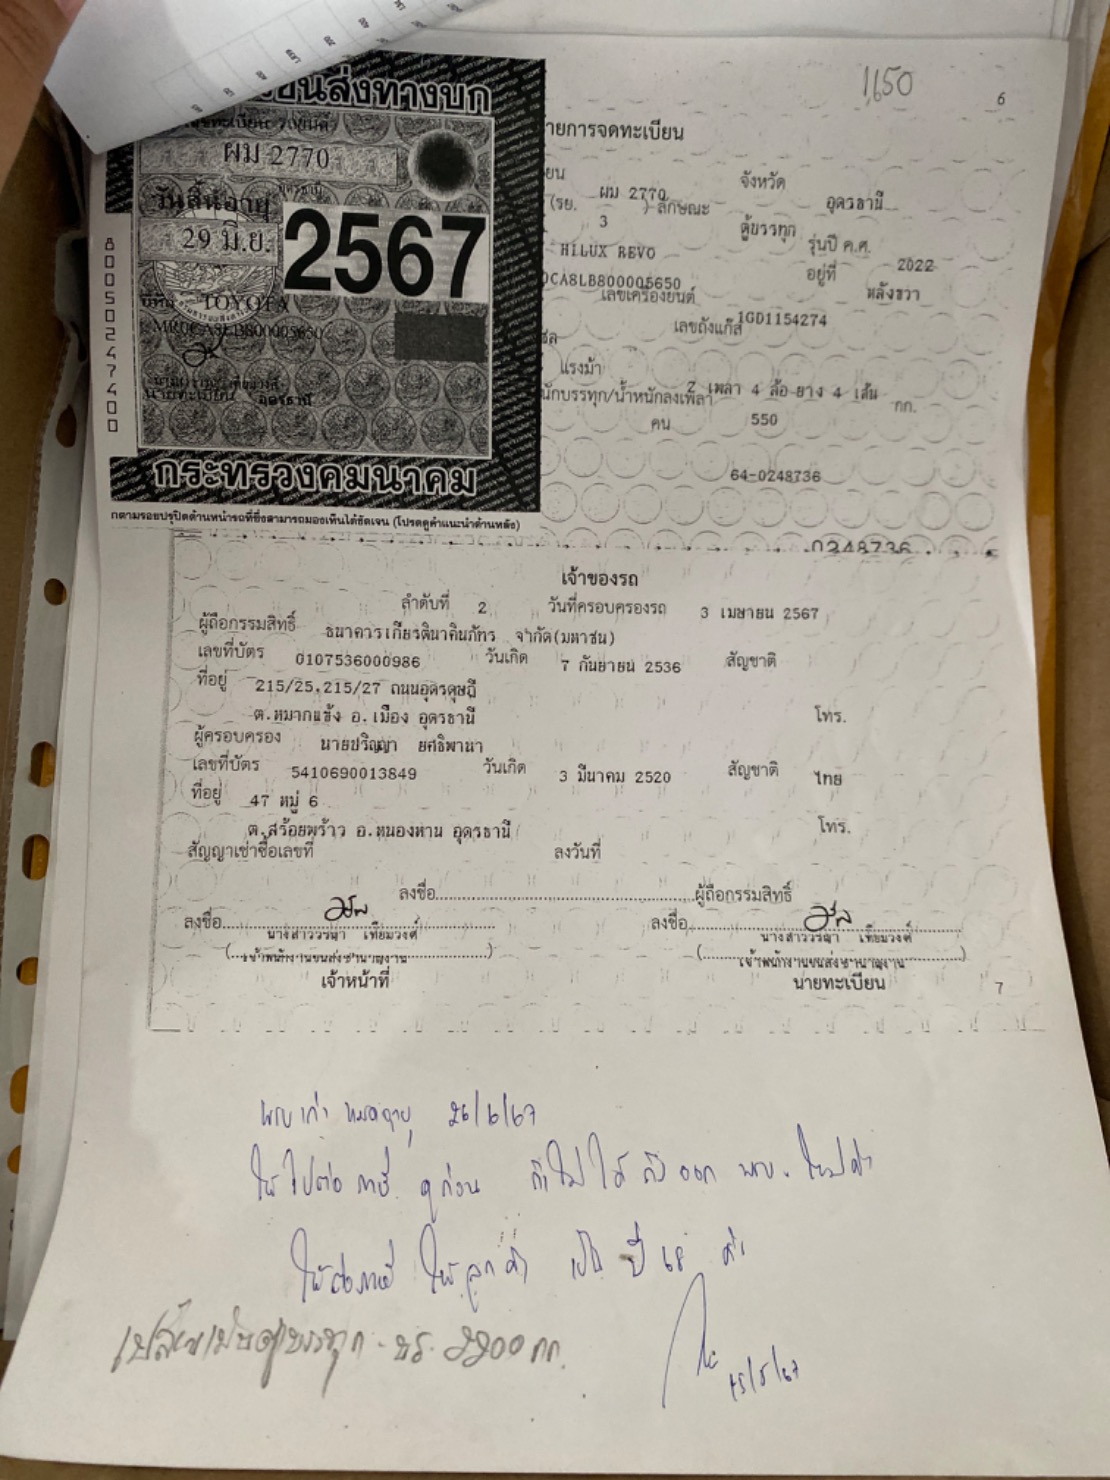 1,650
6
ขนส่งทางบก
ผม 2770
อุดรธานี
วันสิ้นอายุ
29 มิ.ย. 2567
TOYOTA
MR0CA8LB800005650
นายทะเบียน อุดรธานี
กระทรวงคมนาคม
80050247400
กตามรอยปรุปิดด้านหน้ารถที่ซึ่งสามารถมองเห็นได้ชัดเจน (โปรดดูคำแนะนำด้านหลัง)
ายการจดทะเบียน
ยน ผม 2770 จังหวัด อุดรธานี
(รย. 3 ) ลักษณะ ตู้บรรทุก
HILUX REVO รุ่นปี ค.ศ. 2022
0CA8LB800005650 อยู่ที่ หลังขวา
เลขเครื่องยนต์ 1GD1154274
เลขถังแก๊ส
แรงม้า 2 เพลา 4 ล้อ ยาง 4 เส้น
นักบรรทุก/น้ำหนักลงเพลา 550 กก.
คน
64-0248736
0248736
เจ้าของรถ
ลำดับที่ 2 วันที่ครอบครองรถ 3 เมษายน 2567
ผู้ถือกรรมสิทธิ์ ธนาคารเกียรตินาคินภัทร จำกัด(มหาชน)
เลขที่บัตร 0107536000986 วันเกิด 7 กันยายน 2536 สัญชาติ
ที่อยู่ 215/25,215/27 ถนนอุดรดุษฎี
ต.หมากแข้ง อ.เมือง อุดรธานี โทร.
ผู้ครอบครอง นายปริญญา ยศธิพานา
เลขที่บัตร 5410690013849 วันเกิด 3 มีนาคม 2520 สัญชาติ ไทย
ที่อยู่ 47 หมู่ 6
ต.สร้อยพร้าว อ.หนองหาน อุดรธานี โทร.
สัญญาเช่าซื้อเลขที่ ลงวันที่
ลงชื่อ ผู้ถือกรรมสิทธิ์
ลงชื่อ ลงชื่อ
นางสาววรฌา เทียมวงศ์ นางสาววรฌา เทียมวงศ์
(เจ้าพนักงานขนส่งชำนาญงาน) (เจ้าพนักงานขนส่งชำนาญงาน)
เจ้าหน้าที่ นายทะเบียน
7
พรบ เก่า หมดอายุ 26/6/67
ให้ไปต่อ ภาษี ดูก่อน ถ้าไม่ได้ ถึงออก พรบ. ใหม่ค่ะ
ให้ต่อภาษี ให้ลูกค้า เป็น ปี 68 ค่ะ
เปลี่ยนเป็นตู้บรรทุก - นร. 2200 กก.
15/5/67